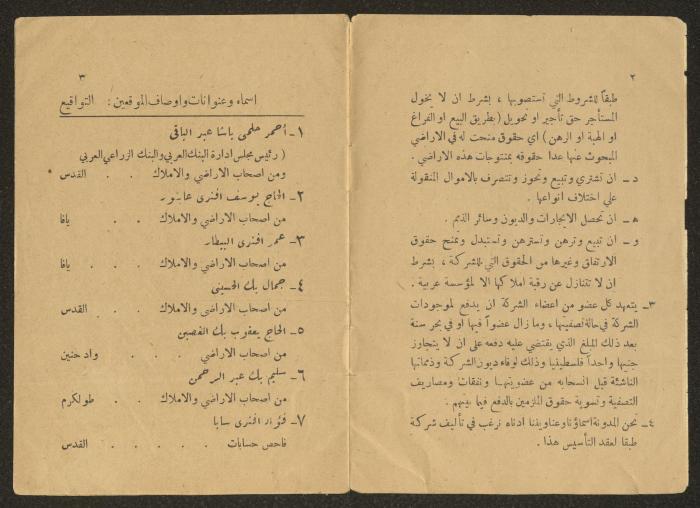 ٢
طبقاً للشروط التي تستصوبها ، بشرط ان لا يخول
المستأجر حق تأجير او تحويل (بطريق البيع او الفراغ
او الهبة او الرهن) اي حقوق منحت له في الاراضي
المبحوث عنها عدا حقوقه بمنتوجات هذه الاراضي .
د ـ ان تشتري وتبيع وتحوز وتتصرف بالاموال المنقولة
على اختلاف انواعها .
هـ ـ ان تحصل الايجارات والديون وسائر الذمم .
و ـ ان تبيع وترهن وتسترهن وتستبدل وتمنح حقوق
الارتفاق وغيرها من الحقوق التي للشركة ، بشرط
ان لا تتنازل عن رقبة املاكها الا لمؤسسة عربية .
٣ ـ يتعهد كل عضو من اعضاء الشركة ان يدفع لموجودات
الشركة في حالة تصفيتها ، وما زال عضواً فيها او في بحر سنة
بعد ذلك المبلغ الذي يقتضي عليه دفعه على ان لا يتجاوز
جنيها واحداً فلسطينيا وذلك لوفاء ديون الشركة وذماتها
الناشئة قبل انسحابه من عضويتها ونفقات ومصاريف
التصفية وتسوية حقوق الملزمين بالدفع فيما بينهم .
٤ ـ نحن المدونة اسماؤنا وعناويننا ادناه نرغب في تأليف شركة
طبقا لعقد التأسيس هذا .
٣
اسماء وعنوانات واوصاف الموقعين : التواقيع
١ ـ أحمد حلمي باشا عبد الباقي
( رئيس مجلس ادارة البنك العربي والبنك الزراعي العربي
ومن اصحاب الاراضي والاملاك . . القدس
٢ ـ الحاج يوسف افندي عاشور
من اصحاب الاراضي والاملاك . . يافا
٣ ـ عمر افندي البيطار
من اصحاب الاراضي والاملاك . . . يافا
٤ ـ جمال بك الحسيني
من اصحاب الاراضي والاملاك . . القدس
٥ ـ الحاج يعقوب بك الغصين
من اصحاب الاراضي . . . واد حنين
٦ ـ سليم بك عبد الرحمن
من اصحاب الاراضي والاملاك . . طولكرم
٧ ـ فؤاد افندي سابا
فاحص حسابات . . . . . القدس